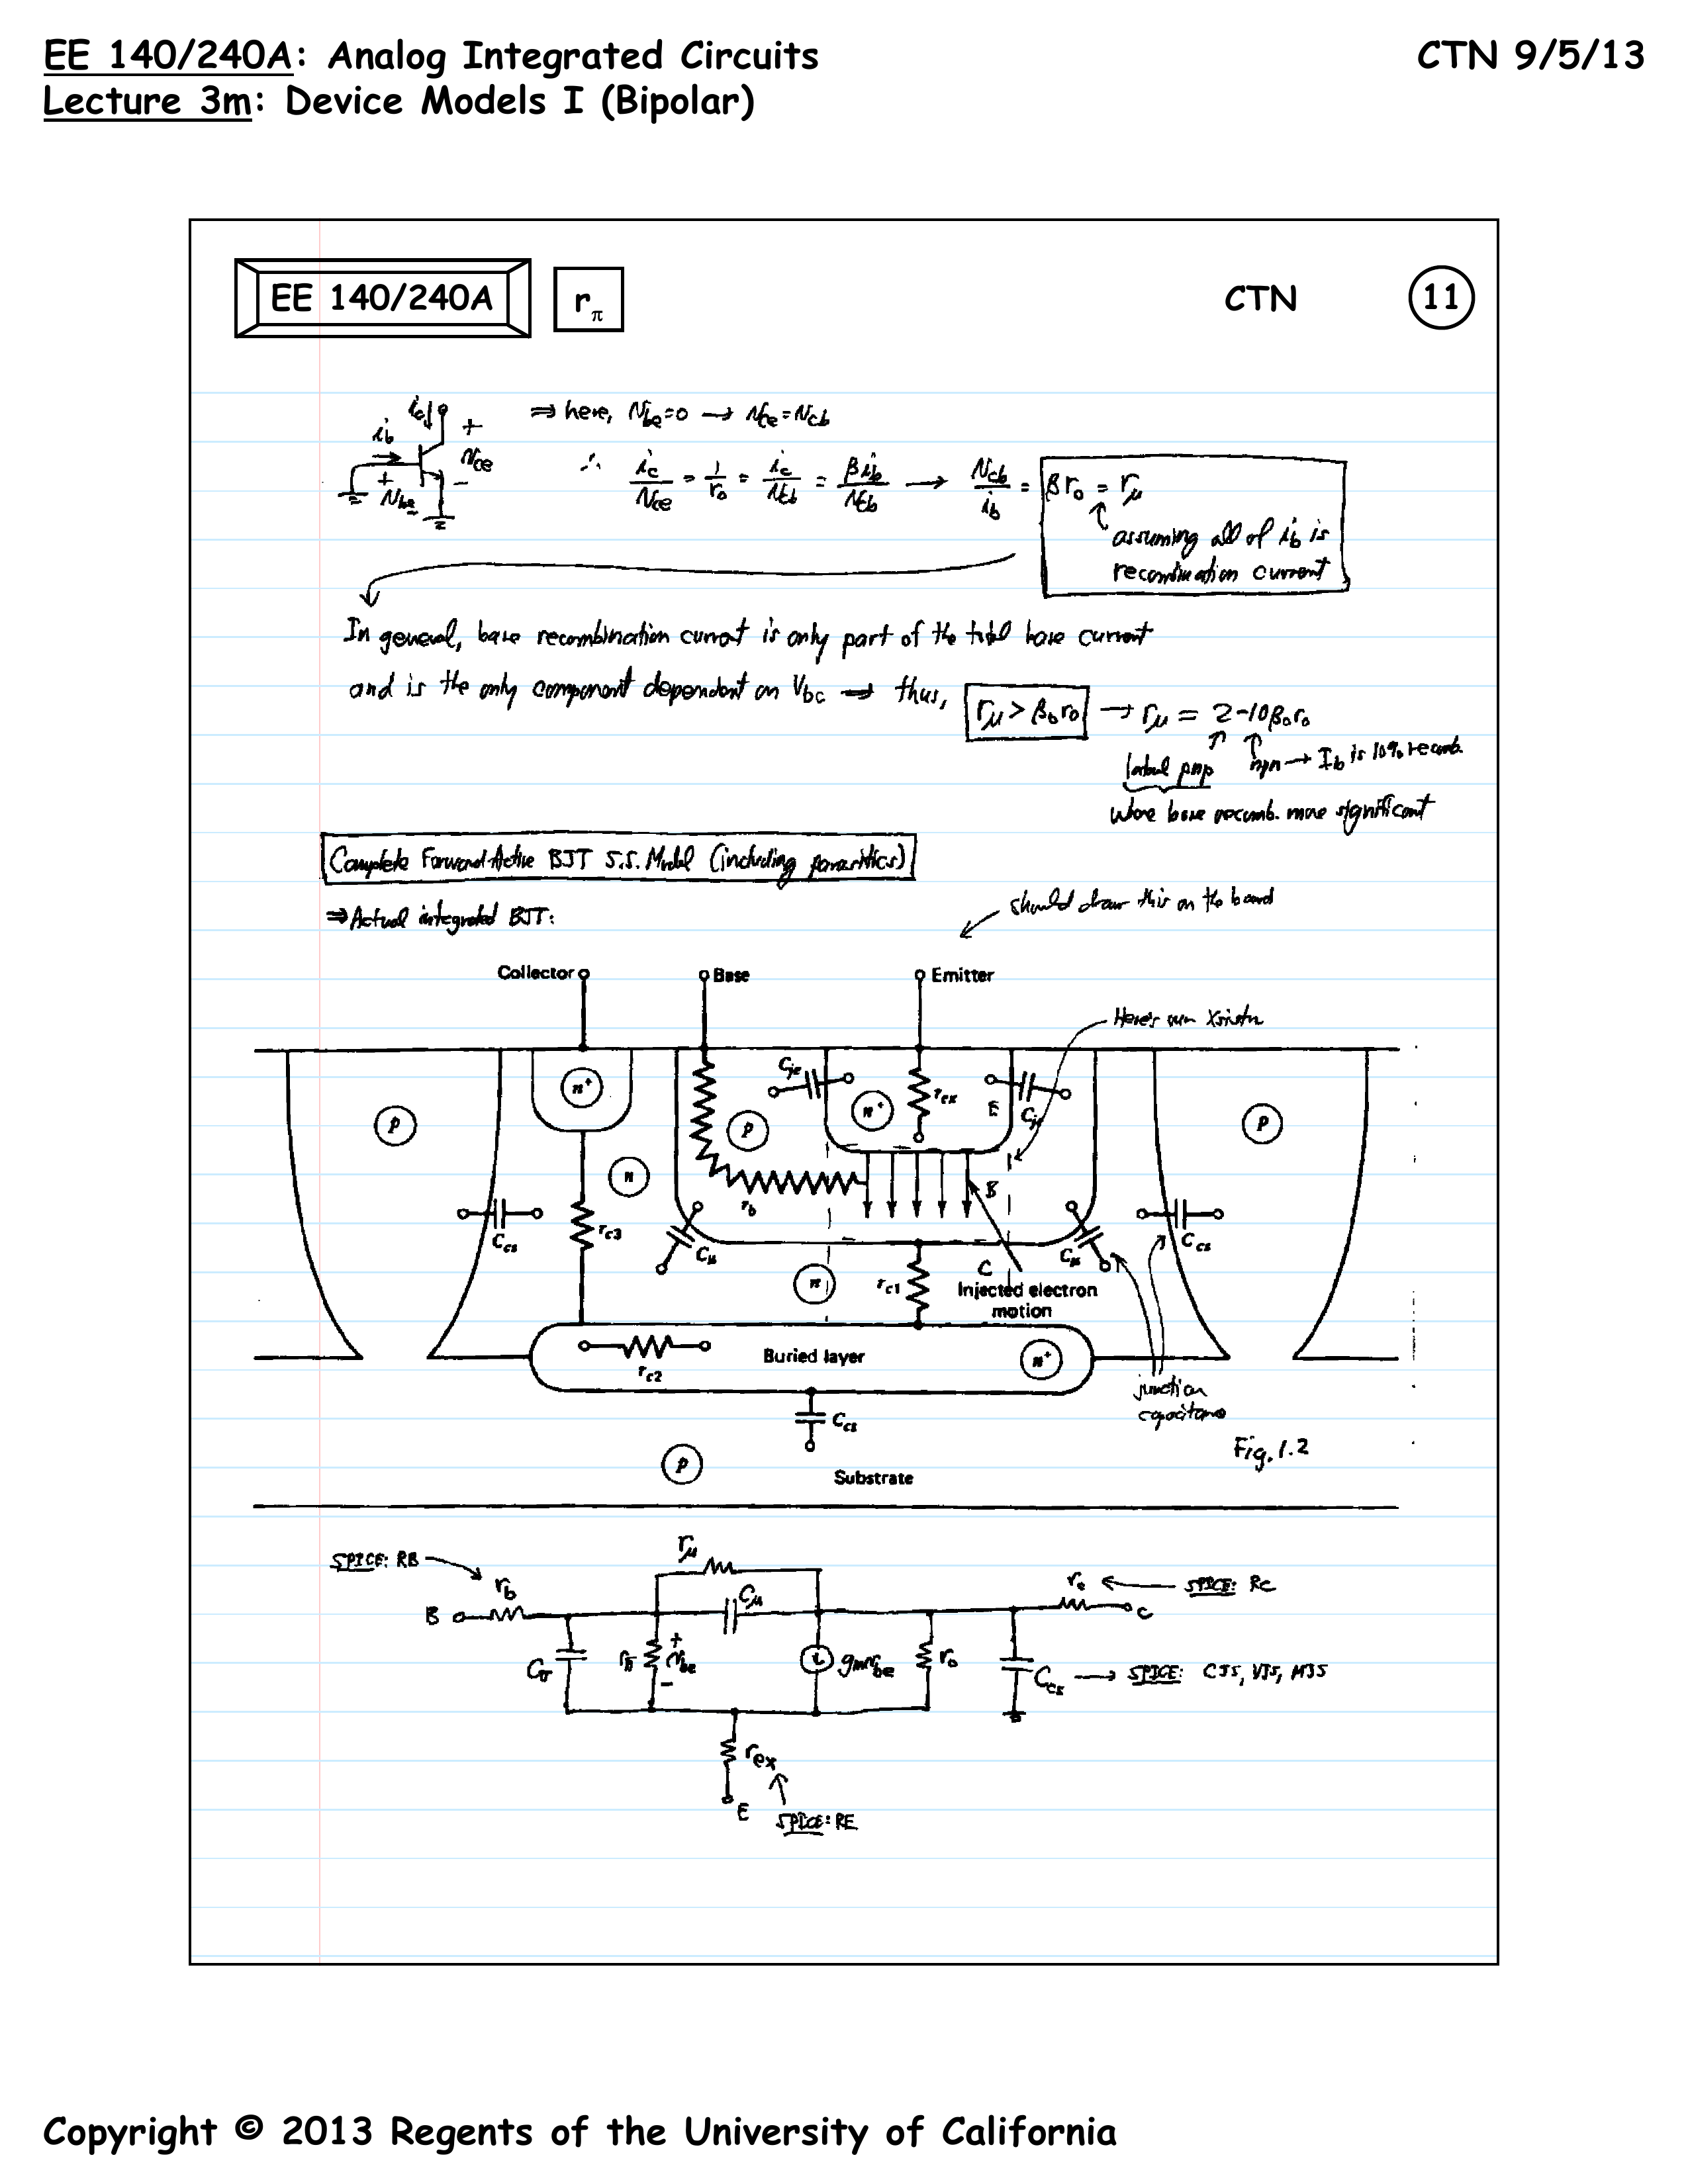 EE 140/240A: Analog Integrated Circuits CTN 9/5/13
Lecture 3m: Device Models I (Bipolar)
EE 140/240A rπ CTN 11
ic + ⇒ here, vbe=0 → vce=vcb
ib vce
+ vbe −
∴ ic/vce = 1/ro = ic/vcb = βib/vcb → vcb/ib = βro = rμ
assuming all of ib is
recombination current
In general, base recombination current is only part of the total base current
and is the only component dependent on Vbc → thus, rμ > βoro → rμ = 2-10βoro
lateral pnp npn → Ib is 10% recomb.
where base recomb. more significant
Complete Forward-Active BJT S.S. Model (including parasitics)
⇒ Actual integrated BJT:
should draw this on the board
Collector Base Emitter
Here's our Xsistor
Cje
n+ rex E Cje
p p n+ p
n
rb B
Ccs rc3 Cμ Cμ Ccs
n rc1 C Injected electron
motion
rc2 Buried layer n+
junction
capacitance
Ccs
Fig. 1.2
p Substrate
rμ
SPICE: RB
rb Cμ rc SPICE: RC
B C
Cπ rπ + vbe − gmvbe ro Ccs → SPICE: CJS, VJS, MJS
rex
E
SPICE: RE
Copyright © 2013 Regents of the University of California